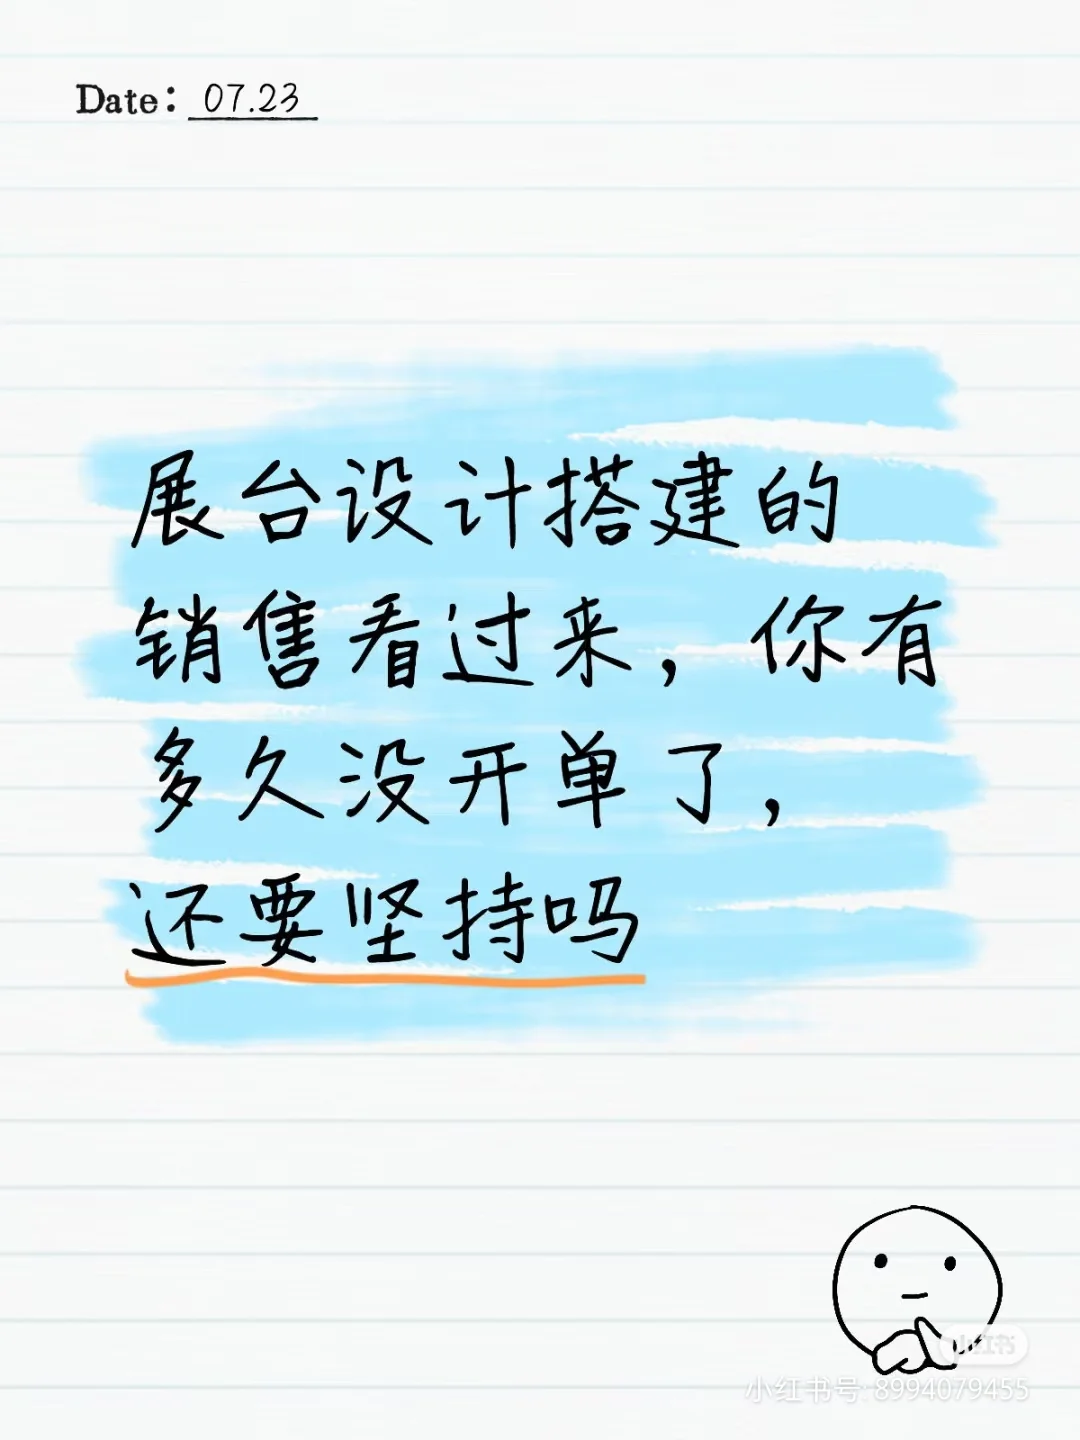 Date: 07.23
展台设计搭建的
销售看过来，你有
多久没开单了，
还要坚持吗
小红书
小红书号: 8994079455